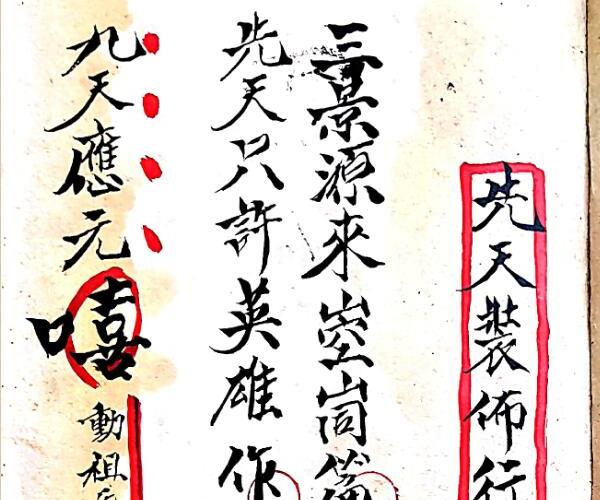 先天裝佈行
三景源來崆峒
先天只許英雄作
九天應元嘻動祖